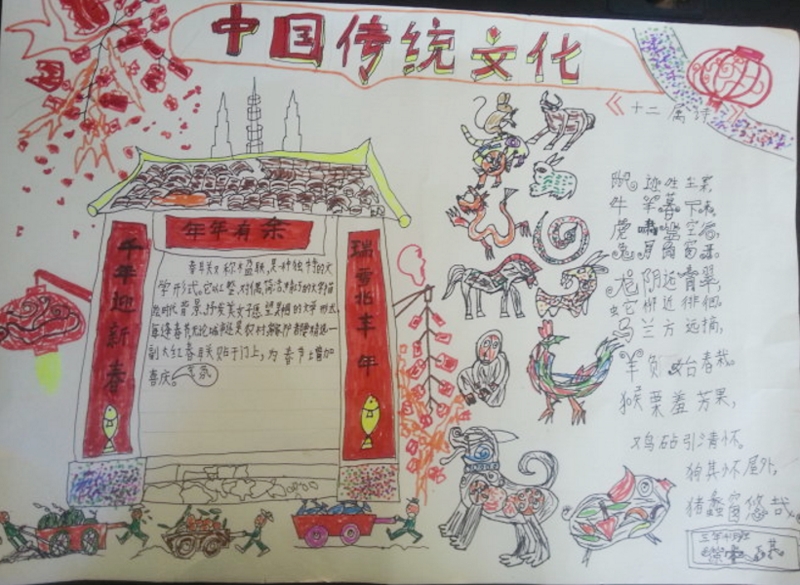 中国传统文化
年年有余
千年迎新春
瑞雪兆丰年
春联又称对联,是一种独特的文
学形式。它以工整、对偶、简洁、精巧的文字描
绘时代背景、抒发美好愿望是我国的文学形式。
每逢春节无论城市还是农村,家家户户都要精选一
副大红春联贴于门上,为春节增加
喜庆气氛
《十二属诗
迹生
牛羊暮下来
虎啸空谷
兔月窗
龙阴远青翠
蛇柳近徘徊
马兰方远摘,
羊负始春栽。
猴栗羞芳果,
鸡砧引清怀。
狗其怀屋外,
猪蠡窗悠哉。
三年